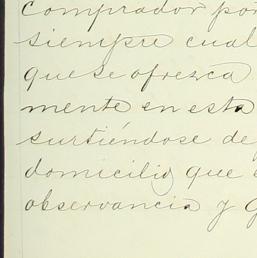 comprador por
siempre cual
que se ofrezca
mente en esta
surtiéndose de
domicilio que
observancia y